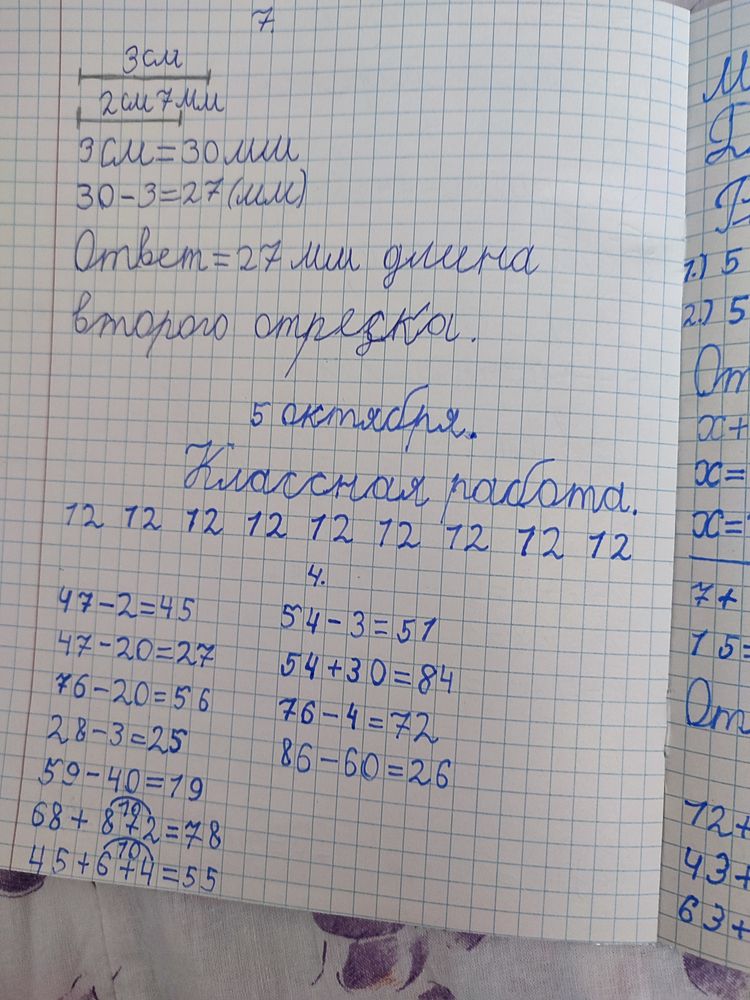 7.
3см
2см 7мм
3см=30мм
30-3=27(мм)
Ответ=27 мм длина
второго отрезка.
5 октября.
Классная работа.
12 12 12 12 12 12 12 12 12
4.
47-2=45
47-20=27
76-20=56
28-3=25
59-40=19
10
68+8+2=78
10
45+6+4=55
54-3=51
54+30=84
76-4=72
86-60=26
М
В
1.) 5
2.) 5
От
х+
х=
х=
7+
15=
От
12+
43+
63+